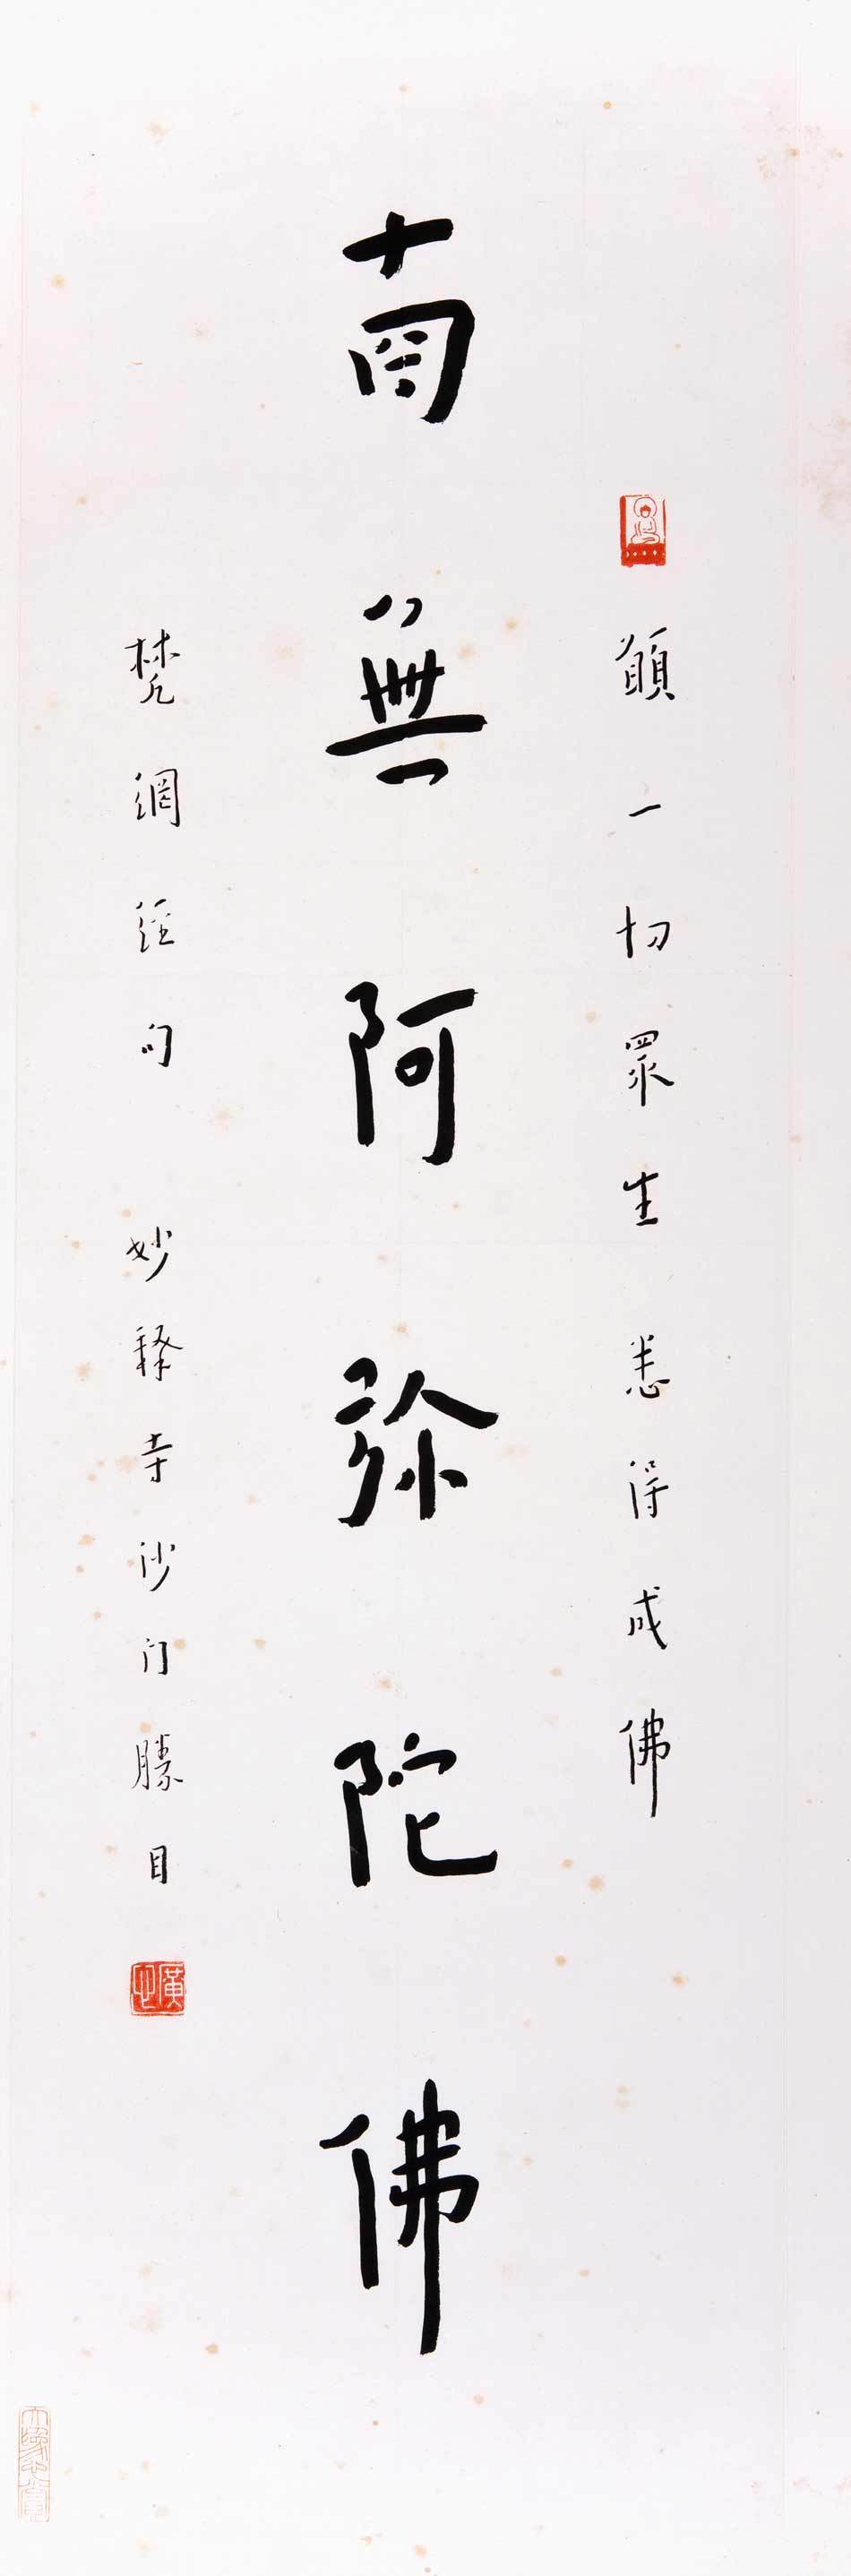 願一切眾生悉得成佛
南無阿弥陀佛
梵網經句 妙釋寺沙门勝目